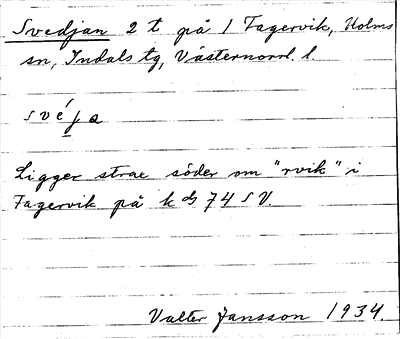 Svedjan 2 t på 1 Fagervik, Holms
sn, Indals tg, Västernorrl. l.
svéja
Ligger strax söder om "rvik" i
Fagervik på k db 74 SV.
Valter Jansson 1934.